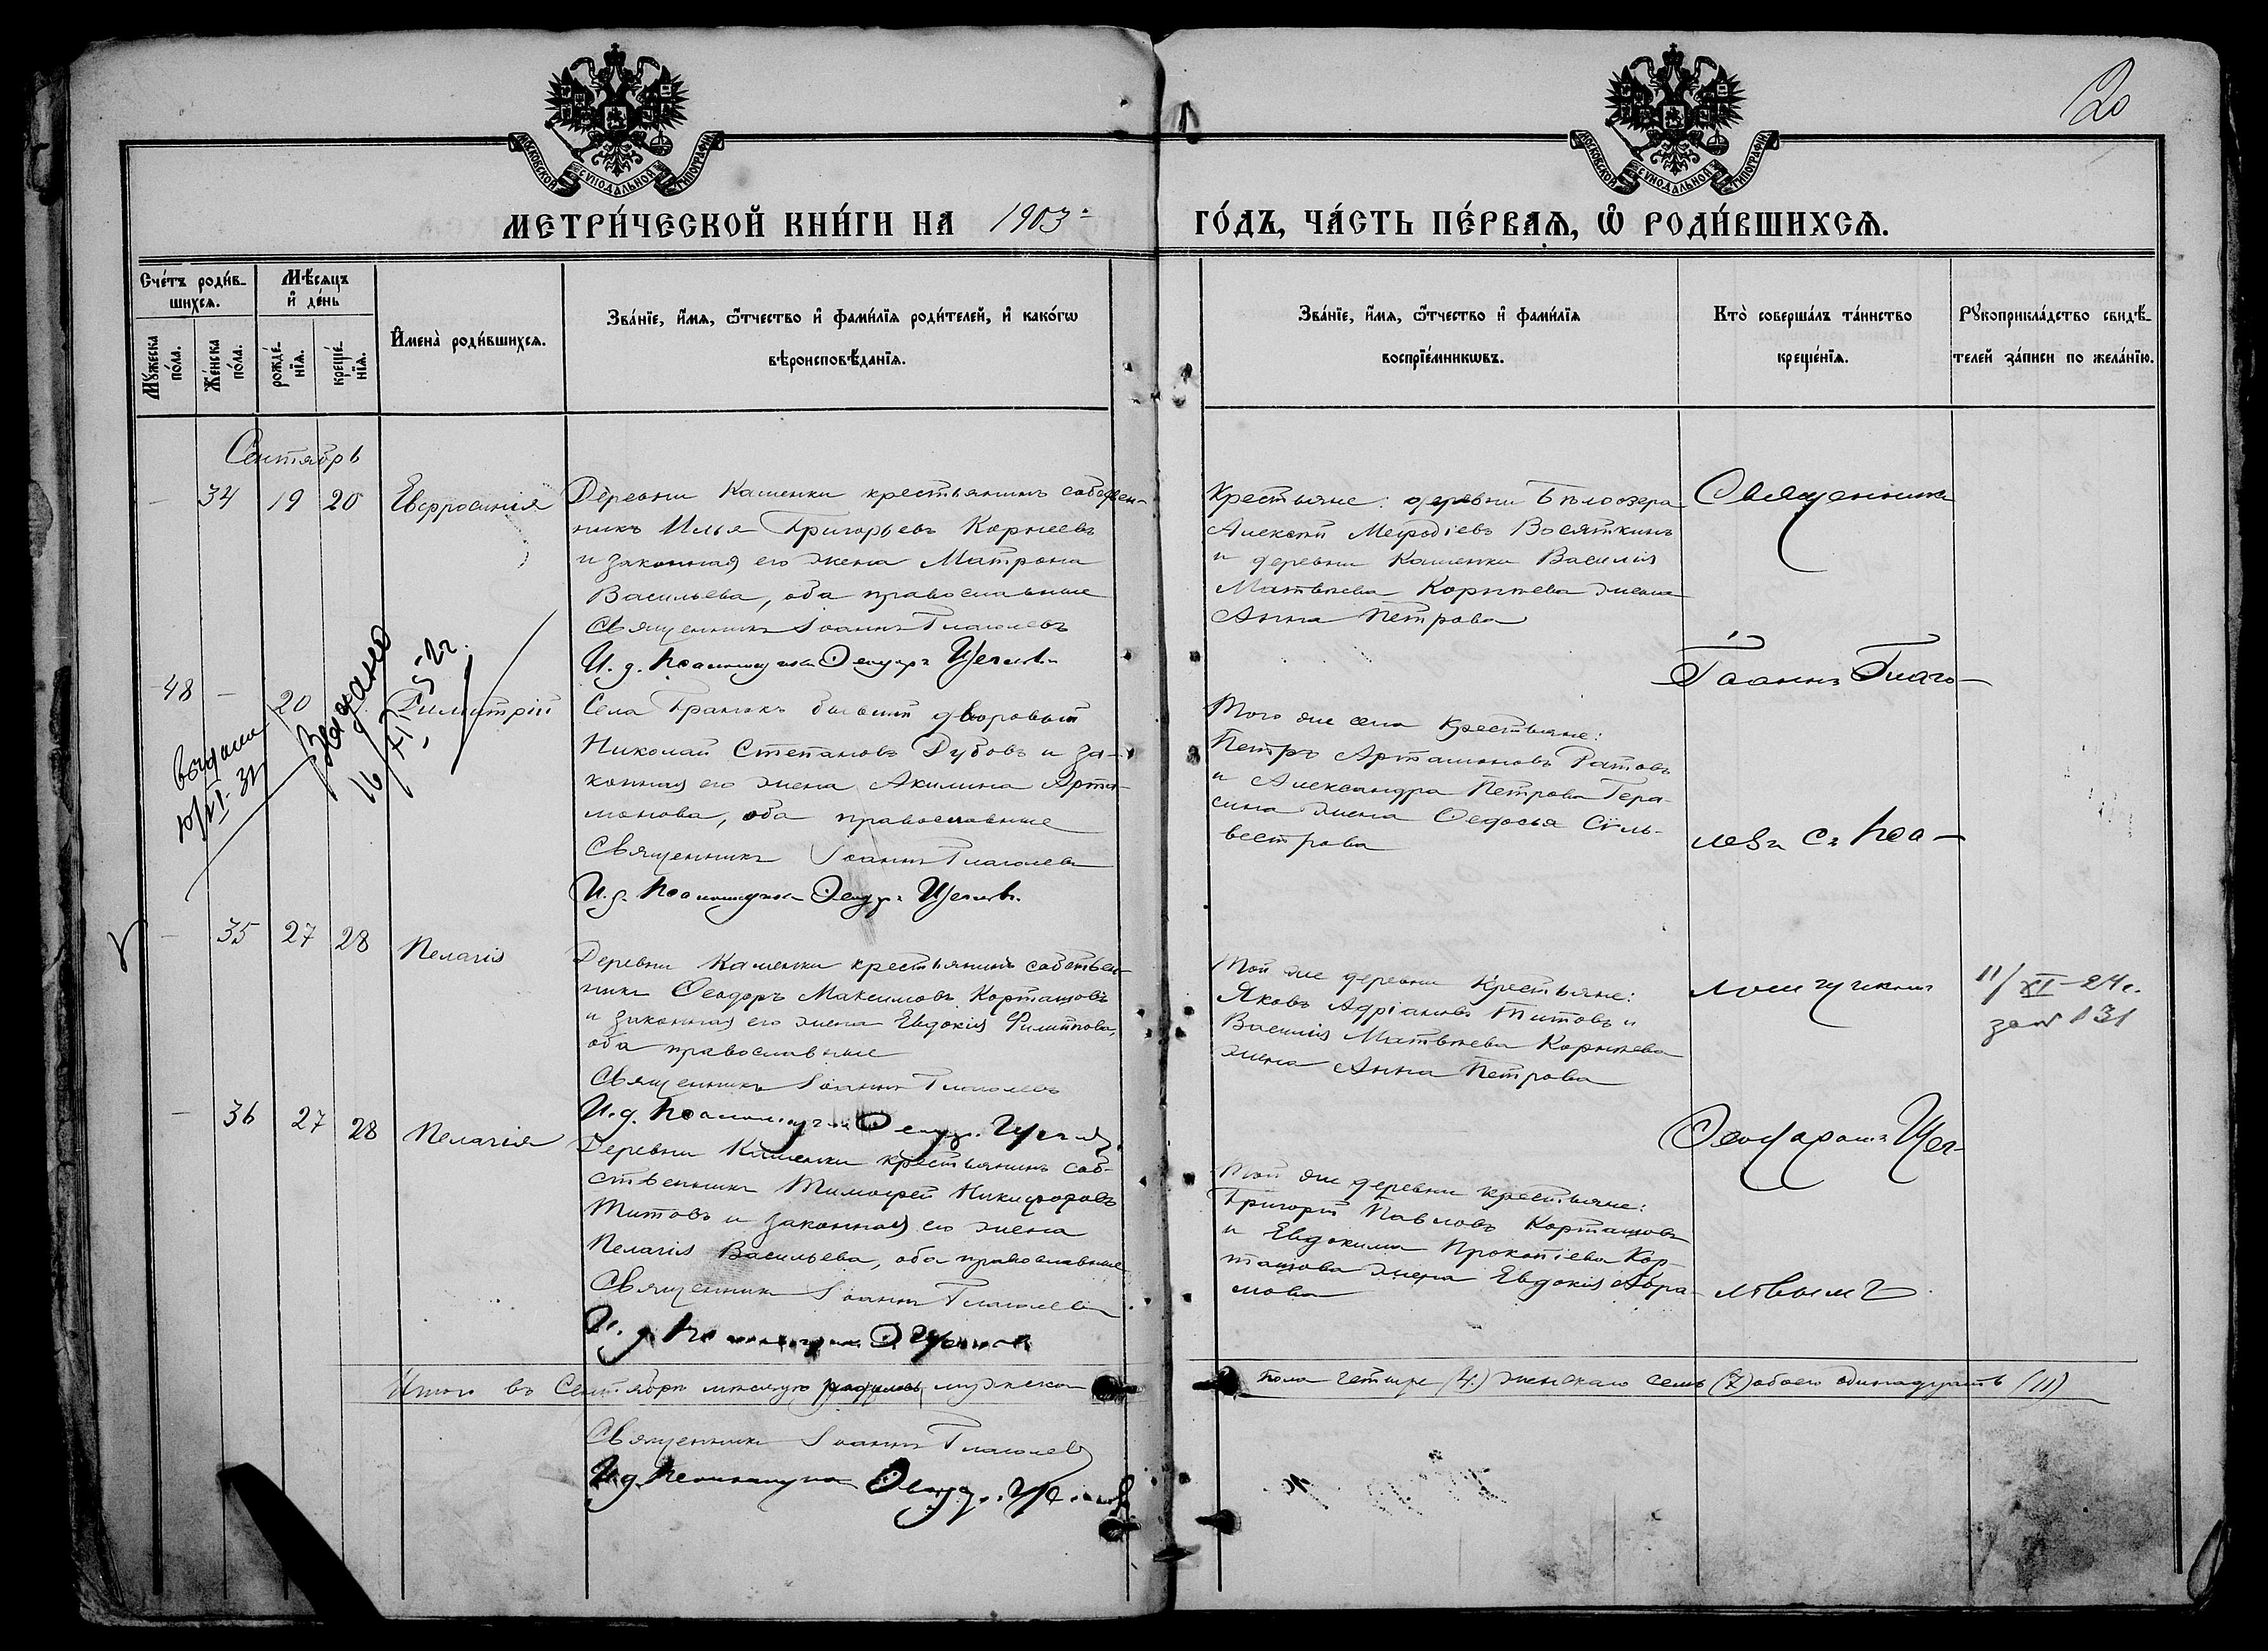 20
МОСКОВСКОЙ СУНОДАЛЬНОЙ ТИПОГРАФІИ
МОСКОВСКОЙ СУНОДАЛЬНОЙ ТИПОГРАФІИ
МЕТРИ́ЧЕСКОЙ КНИ́ГИ НА 1903 ГО́ДЪ, ЧА́СТЬ ПЕ́РВАѦ, Ѡ҆ РОДИ́ВШИХСѦ.
Сче́тъ роди́в-
шихсѧ.
Мꙋ́жеска по́ла.
Же́нска по́ла.
Мѣ́сѧцъ
и҆ де́нь
рожде́-
нїѧ.
креще́-
нїѧ.
И҆мена̀ роди́вшихсѧ.
Зва́нїе, и҆́мѧ, ѻ҆́тчество и҆ фами́лїѧ роди́телей, и҆ како́гѡ
вѣроисповѣ́данїѧ.
Зва́нїе, и҆́мѧ, ѻ҆́тчество и҆ фами́лїѧ
воспрїе́мникѡвъ.
Кто̀ соверша́лъ та́инство
креще́нїѧ.
Рꙋкоприкла́дство свидѣ́-
телей за́писи по жела́нїю.
Сентябрь
- 34 19 20 Евфросинія
Деревни Каменки крестьянинъ собствен-
никъ Илья Григорьевъ Корнеевъ
и законная его жена Матрона
Васильева, оба православные
Священникъ Іоаннъ Глаголевъ
И. д. Псаломщика Ѳеодоръ Щегловъ
Крестьяне: деревни Бѣлоозера
Алексѣй Меѳодіевъ Восяткинъ
и деревни Каменки Василія
Матвѣева Корнѣева жена
Анна Петрова
Священникъ
Іоаннъ Глаго-
левъ съ Пса-
ломщикомъ
Ѳеодоромъ Щег-
ловымъ
48 - 20 Димитрій
выдана
10/VI-31
Выдано
16/VI-52г.
Села бывшій дворовый
Николай Степановъ Дубовъ и за-
конная его жена Акилина Арта-
монова, оба православные
Священникъ Іоаннъ Глаголевъ
И. д. Псаломщика Ѳеодоръ Щегловъ
Того же села крестьяне:
Петръ Артамоновъ Ратовъ
и Александра Петрова Гера-
сина жена Ѳедосья Силь-
вестрова
- 35 27 28 Пелагія
Деревни Каменки крестьянинъ собствен-
никъ Ѳеодоръ Максимовъ Карташовъ
и законная его жена Евдокія Филиппова,
оба православные
Священникъ Іоаннъ Глаголевъ
И. д. Псаломщика Ѳеодоръ Щегловъ
Той же деревни крестьяне:
Яковъ Адріановъ Титовъ и
Василія Матвѣева Корнѣева
жена Анна Петрова
11/XI-24г.
за № 131
- 36 27 28 Пелагія
Деревни Каменки крестьянинъ соб-
ственникъ Тимоѳей Никифоровъ
Титовъ и законная его жена
Пелагія Васильева, оба православные
Священникъ Іоаннъ Глаголевъ
И. д. Псаломщика Ѳ. Щегловъ
Той же деревни крестьяне:
Григорій Павловъ Карташовъ
и Евдокима Прокопіева Кар-
ташова жена Евдокія Абра-
мова
Итого въ Сентябрѣ мѣсяцѣ родилось мужеска пола четыре (4.) женскаго семь (7) обоего одинадцать (11)
Священникъ Іоаннъ Глаголевъ
И. д. Псаломщика Ѳеодоръ Щегловъ